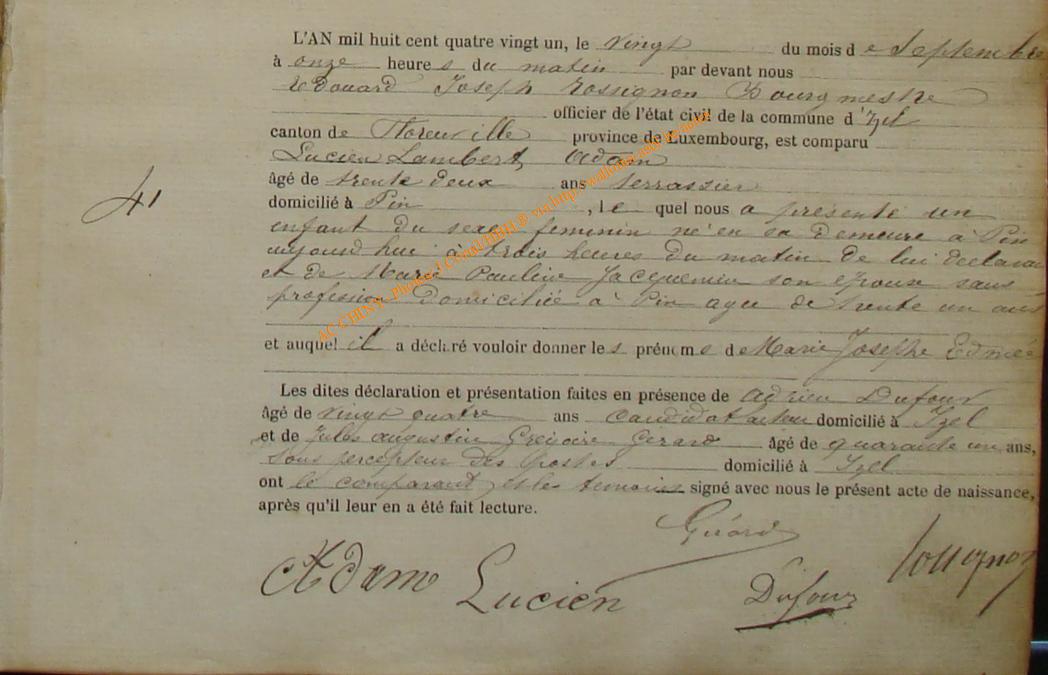 L'AN mil huit cent quatre vingt un, le vingt du mois de Septembre
à onze heures du matin par devant nous
Edouard Joseph Rossignon Bourgmestre
officier de l'état civil de la commune d'Izel
canton de Florenville province de Luxembourg, est comparu
Lucien Lambert Adam
âgé de trente deux ans terrassier
domicilié à Pin, le quel nous a présenté un
41
enfant du sexe feminin né en sa demeure à Pin
aujourd'hui à trois heures du matin de lui déclarant
et de Marie Pauline Jacquemin son epouse sans
profession domiciliée à Pin agee de trente un ans
et auquel il a déclaré vouloir donner les prénoms de Marie Josephe Edmée
Les dites déclaration et présentation faites en présence de Adrien Dufour
âgé de vingt quatre ans candidat domicilié à Izel
et de Jules augustin Gregoire Gerard âgé de quarante un ans,
Sous percepteur des Postes domicilié à Izel
ont le comparant et les temoins signé avec nous le présent acte de naissance,
après qu'il leur en a été fait lecture.
Gérard
Rossignon
Adam Lucien
Dufour